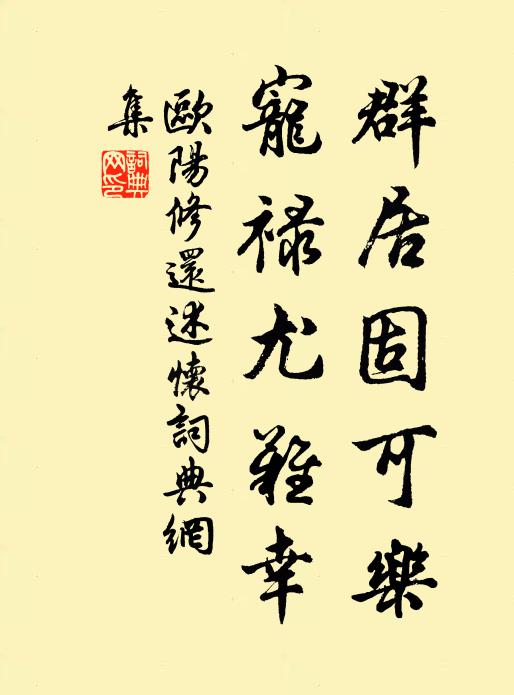 群居固可樂
寵禄尤難幸
歐陽修還述懷詞典網
集
詞典
网印